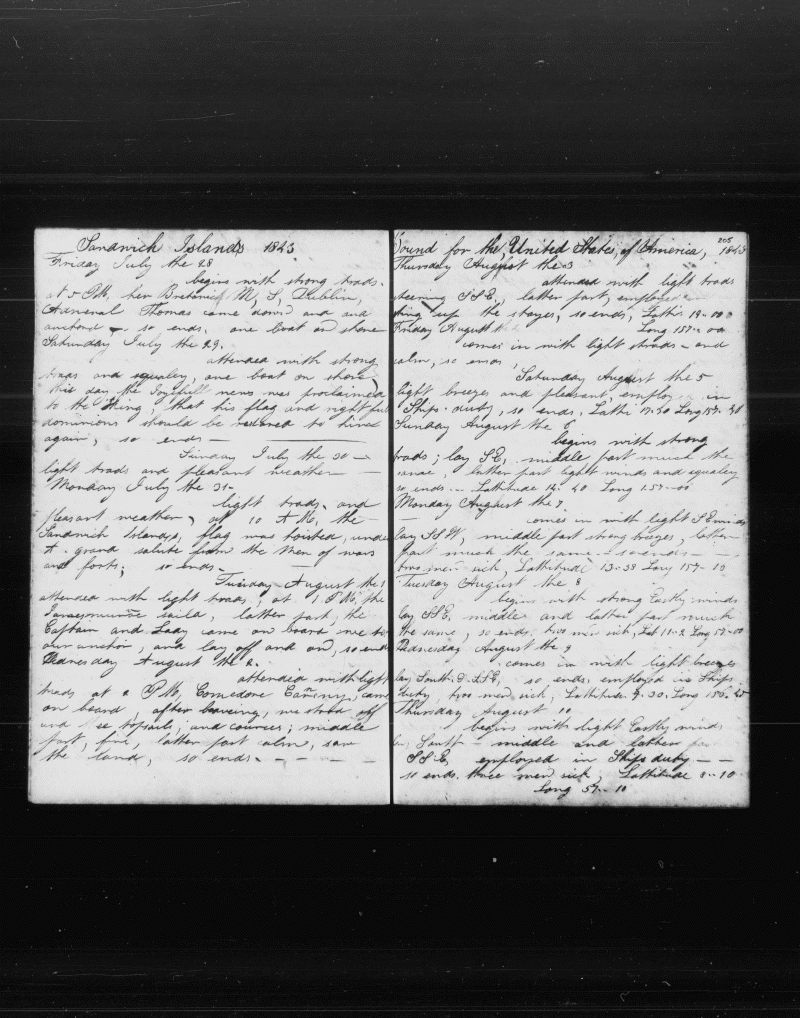 Sandwich Islands 1843
Friday July the 28
begins with strong trads.
at 5 P.M, her Bretanic M, S, Dublin,
Admeral Thomas came down and and
anchord so ends. one boat on shore
Saturday July the 29.
attended with strong
trads and squaley, one boat on shore
this day the Joyfull news was proclaimed
to the King, that his flag and rightful
dominions should be restored to him
again, so ends —
Sunday July the 30 —
light trads and pleasant weather — —
Monday July the 31-
light trads, and
pleasant weather, at 10 A M, the
Sandwich Islands, flag was hoisted, under
A. grand salute from the Men of wars
and forts; so ends. —
Tuesday August the 1
attended with light trads, at 1 P. M, the
saild, latter part, the
Captain and Lady came on board
our anchor, and lay off and on, so ends
Wednesday August the 2.
attended with light
trads at 2 P M, Comedore came
on board after leaveing, we stood off
and topsails, and courses; middle
part, fine, latter part calm, saw
the land, so ends. - - - -
205
Bound for the, United States, of America, 1843
Thursday August the 3
attended with light trads
steering S S E, latter part, employed
up the stayes, so ends, Latti 19-00
Friday August Long 157-00
comes in with light trads - and
calm, so ends,
Saturday August the 5
light breezes and pleasant, employ in
Ships duty, so ends. Latti 17-20 Long 157-
Sunday August the 6
begins with strong
trads; lay S E, middle part much the
same, latter part light winds and squaley
so ends - Lattitude 40 Long 157-00
Monday August the 7
comes in with light S E winds
lay S S W, middle part strong breezes, latter
part much the same so ends - - -
two men sick, Lattitude 13-38 Long 157-10
Tuesday August the 8
begins with strong Eastly winds
lay S S E, middle and latter part much
the same, so ends, two men sick, Lat 11-2 Long 157-00
Wednesday August the 9
comes in with light breezes
lay South. & S S E, so ends. employed in Ships
duty two men sick, Lattitude 9-30. Long 156-45
Thursday August 10
begins with light Eastly winds
South - middle and latter
S S E, employed in Ships duty - -
so ends. three men sick, Lattitude 10
Long 57-10